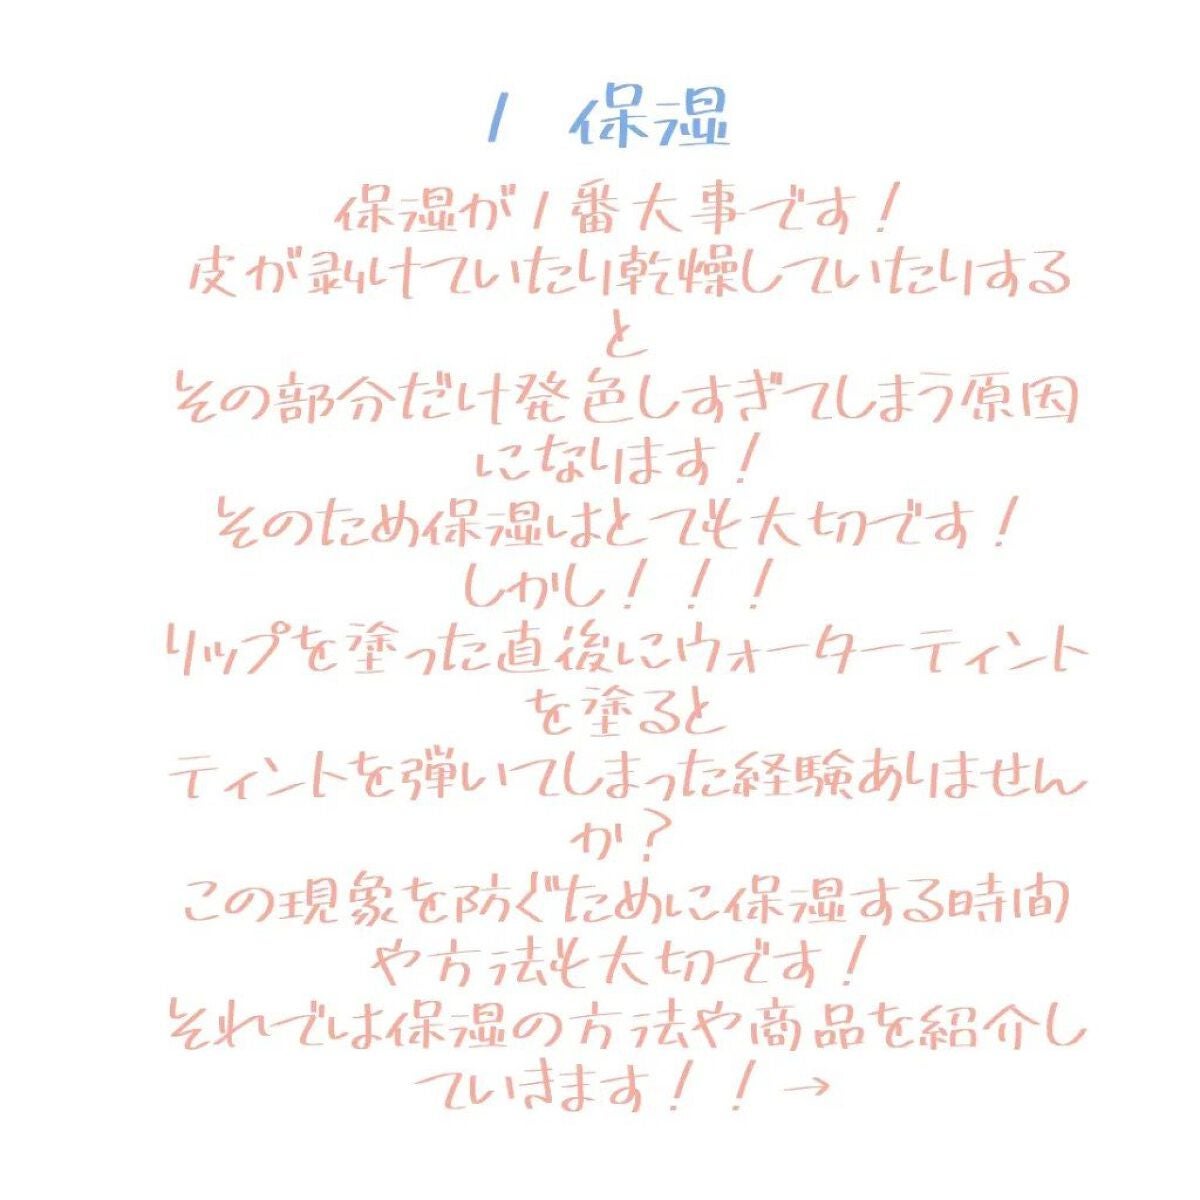 1 保湿
保湿が1番大事です!
皮が剥けていたり乾燥していたりする
と
その部分だけ発色しすぎてしまう原因
になります!
そのため保湿はとても大切です!
しかし!!!
リップを塗った直後にウォーターティント
を塗ると
ティントを弾いてしまった経験ありません
か?
この現象を防ぐために保湿する時間
や方法も大切です!
それでは保湿の方法や商品を紹介し
ていきます!!→